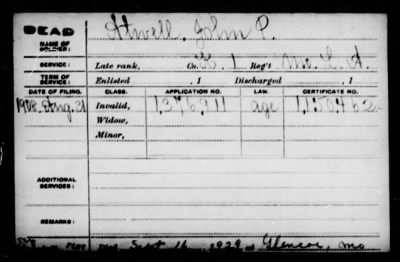 DEAD
NAME OF SOLDIER: Atwell, John P.
SERVICE: Late rank, Co. 1 Reg't Mo. L. A.
TERM OF SERVICE: Enlisted , 1 Discharged , 1
DATE OF FILING. CLASS. APPLICATION NO. LAW. CERTIFICATE NO.
1908, Aug. 21 Invalid, 1,376,911 age 1,150,462
Widow,
Minor,
ADDITIONAL SERVICES:
REMARKS:
Died Sept 16 1929 at Glencoe, Mo